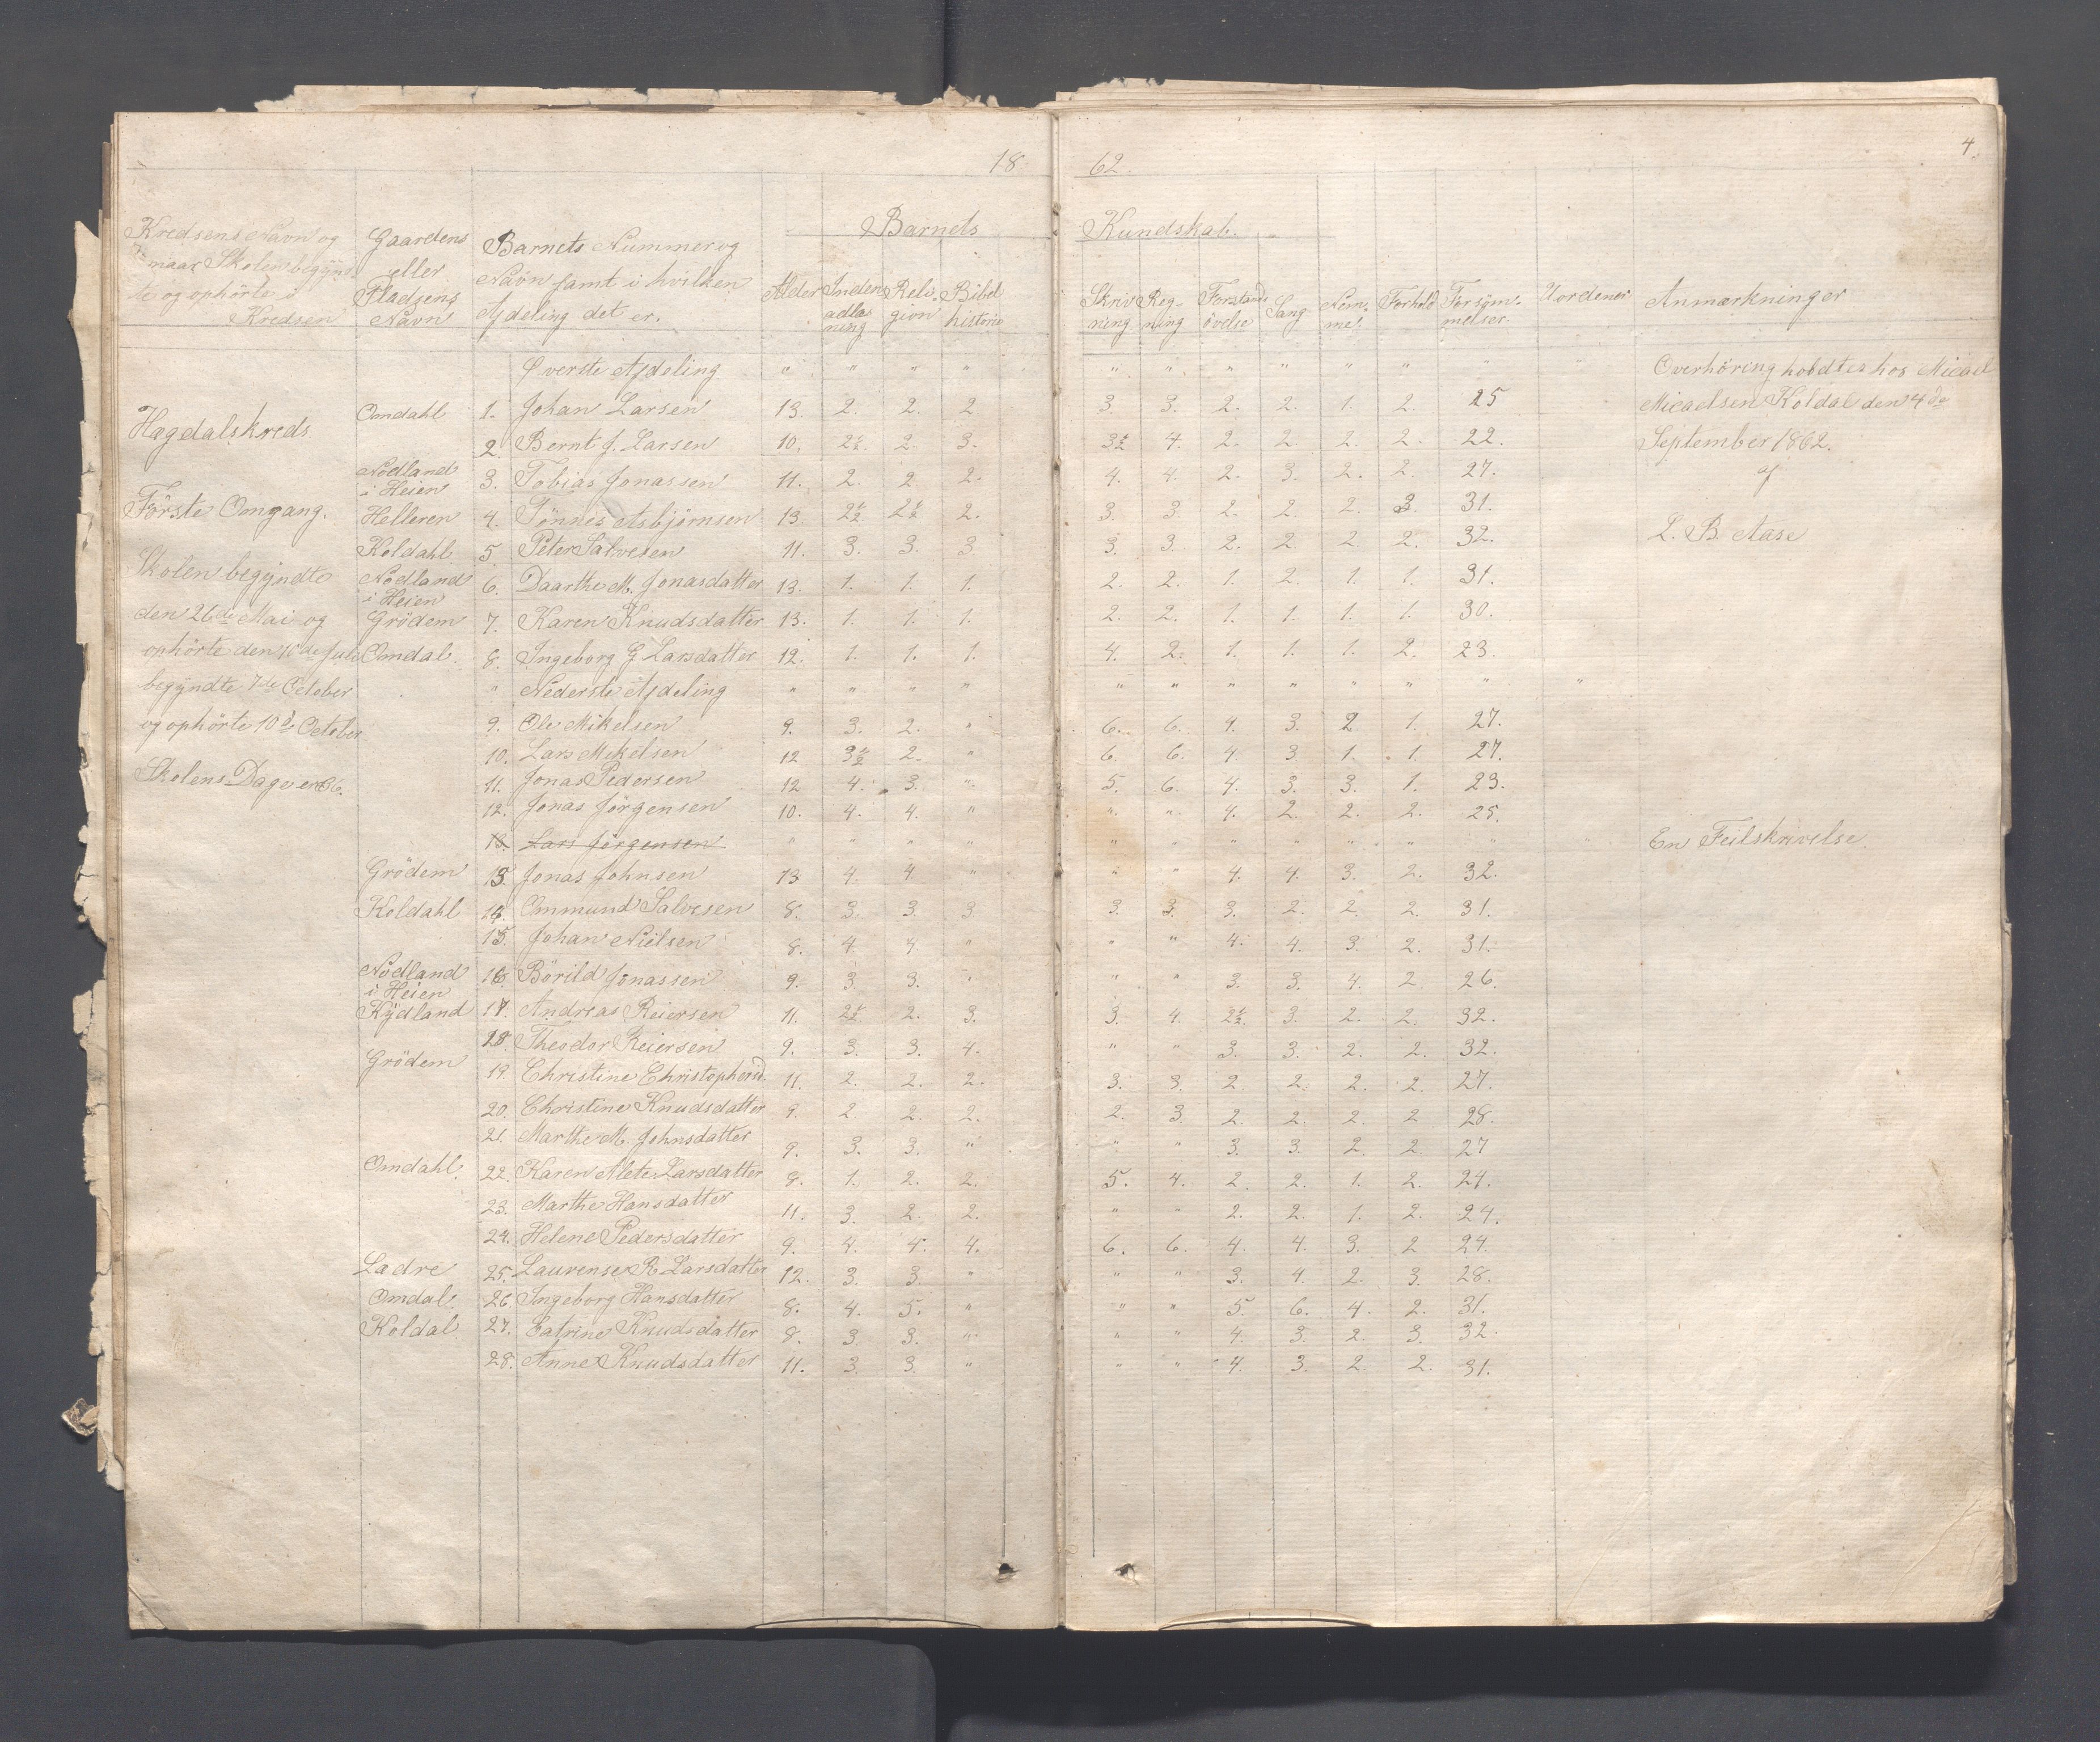 18 62. 4.
Kredsens Navn og naar Skolen begyndte og ophörte i Kredsen
Gaardens eller Pladsens Navn
Barnets Nummer og Navn samt i hvilken Afdeling det er.
Barnets Kundskab.
Alder Indenadlæsning Religion Bibelhistorie Skrivning Regning Forstandsövelse Sang Nemme Forhold Forsömmelser Uordener Anmærkninger
Hagdalskreds
Förste Omgang.
Skolen begyndte
den 26de Mai og
ophörte den 16de Juli
begyndte 7de October
og ophörte 10de October
Skolens Dage er 36.
Øverste Afdeling " " " " " " " " " " " "
Omdahl 1. Johan Larsen 13. 2. 2. 2 3. 3. 2. 2. 1. 2. 25
2. Bernt J. Larsen 10. 2½. 2 3. 3½ 4. 2. 2. 2. 2. 22.
Nodland i Heien 3. Tobias Jonassen 11. 2. 2 2. 4. 4. 2. 3. 2. 2. 27.
Helleren 4. Tønnes Asbjørnsen 13. 2½ 2½ 2. 3. 3. 2. 2. 2. 3. 31.
Koldahl 5 Peter Salvesen 11. 3. 3. 3. 3. 3. 2. 2. 2. 2. 32.
Nodland i Heien 6. Daarthe M. Jonasdatter 13. 1. 1. 1. 2. 2. 1. 2. 1. 1. 31.
Grödem 7. Karen Knudsdatter 13. 1. 1. 1. 2. 2. 1. 1. 1. 1. 30.
Omdal. 8. Ingeborg G Larsdatter 12. 1. 1. 1. 4. 2. 1. 1. 1. 2. 23.
" Nederste Afdeling " " " " " " " " " " " "
9. Ole Mikelsen 9. 3. 2. " 6. 6. 4. 3. 2 1. 27.
10. Lars Mikelsen 12 3½ 2. " 6. 6. 4. 3 1. 1. 27.
11. Jonas Pedersen 12 4. 3. " 5. 6. 4. 3. 3. 1. 23.
12. Jonas Jörgensen 10. 4. 4. " " " 4. 2. 2. 2. 25.
13. Lars Jörgensen " " " " " " " " " " "
Grödem 13. Jonas Johnsen 13 4. 4 " " " 4. 4. 3. 2. 32.
Koldahl 14. Ommund Salvesen 8. 3. 3. 3. 3. 3. 3. 2. 2. 2. 31.
15. Johan Nielsen 8. 4. 4. " " " 4. 4. 3. 2. 31.
Nodland i Heien 16 Börild Jonassen 9. 3. 3. " " " 3. 3. 4. 2. 26.
Kydland 17. Andreas Reiersen 11. 2½ 2. 3. 3. 4. 2½. 3. 2. 2. 32.
18. Theodor Reiersen 9. 3. 3. 4. " " 3. 3. 2. 2. 32.
Grödem 19. Christine Christophersd. 11. 2. 2. 2. 3. 3. 2. 2. 2. 2. 27.
20. Christine Knudsdatter 9. 2 2. 2. 2. 3. 2. 2. 2. 2 28.
21. Marthe M. Johnsdatter 9. 3. 3. " " " 3. 3. 2. 2. 27
Omdahl 22. Karen Mete Larsdatter 8. 1. 2. 2. 5. 4. 2. 2. 1. 2. 24.
23. Marthe Hansdatter 11. 3. 2. 2. " " 2. 2. 1. 2. 24.
24. Helene Pedersdatter 9. 4. 4. 4. 6. 6. 4. 4. 3. 2 24.
Ladre 25. Laurense R Larsdatter 12. 3. 3. " " " 3. 4. 2. 3. 28.
Omdal. 26. Ingeborg Hansdatter 8. 4. 5. " " " 5. 6. 4. 2. 31.
Koldal. 27. Catrine Knudsdatter 8. 3. 3. " " " 4. 3. 2. 3. 32.
28. Anne Knudsdatter 11. 3. 3. " " " 4. 3. 2. 2. 31.
Overhöring holdtes hos Micael
Micaelsen Koldal den 4de
September 1862.
af
L. B. Aase
En Feilskrivelse.